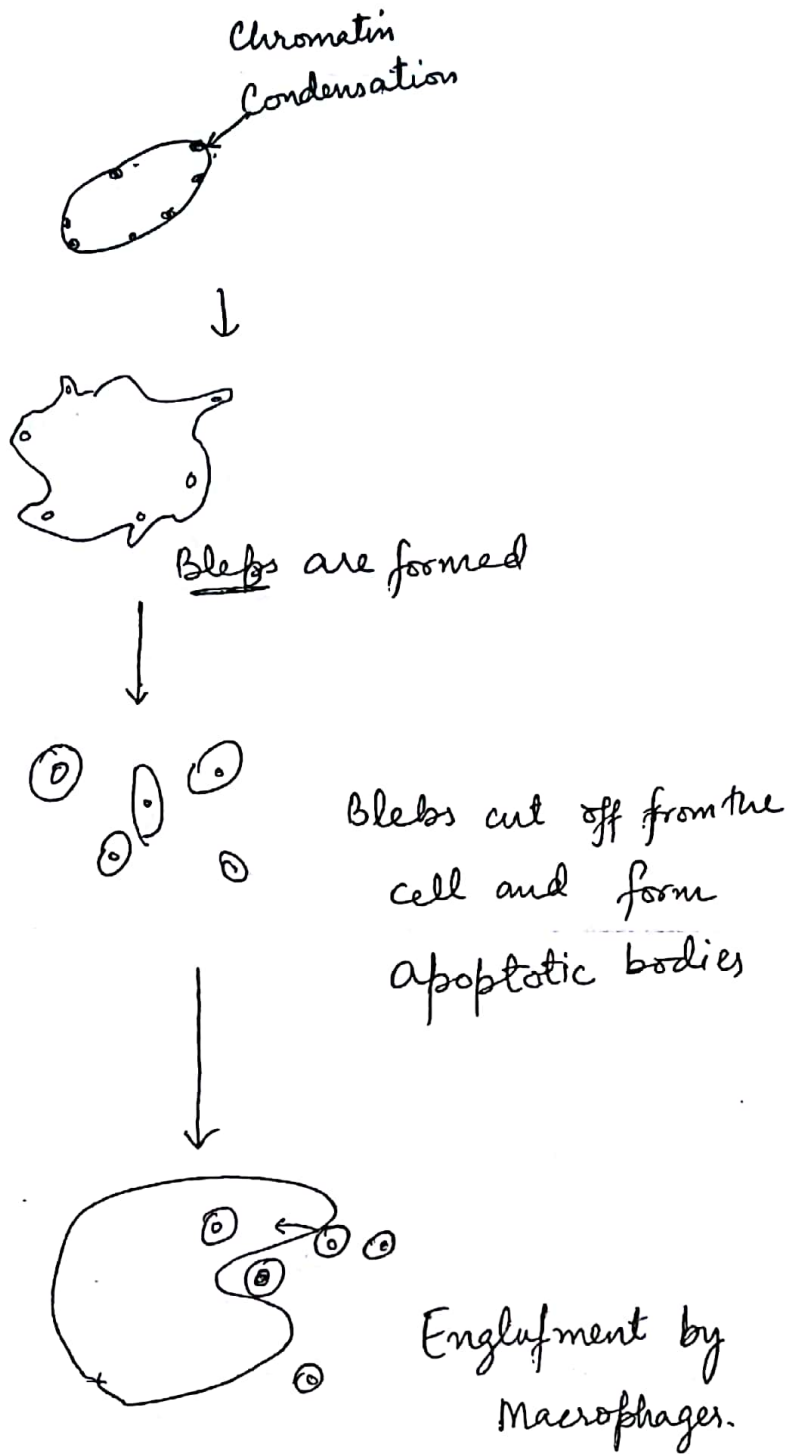 Chromatin
Condensation
Blebs are formed
Blebs cut off from the
cell and form
apoptotic bodies
Englufment by
Macrophages.